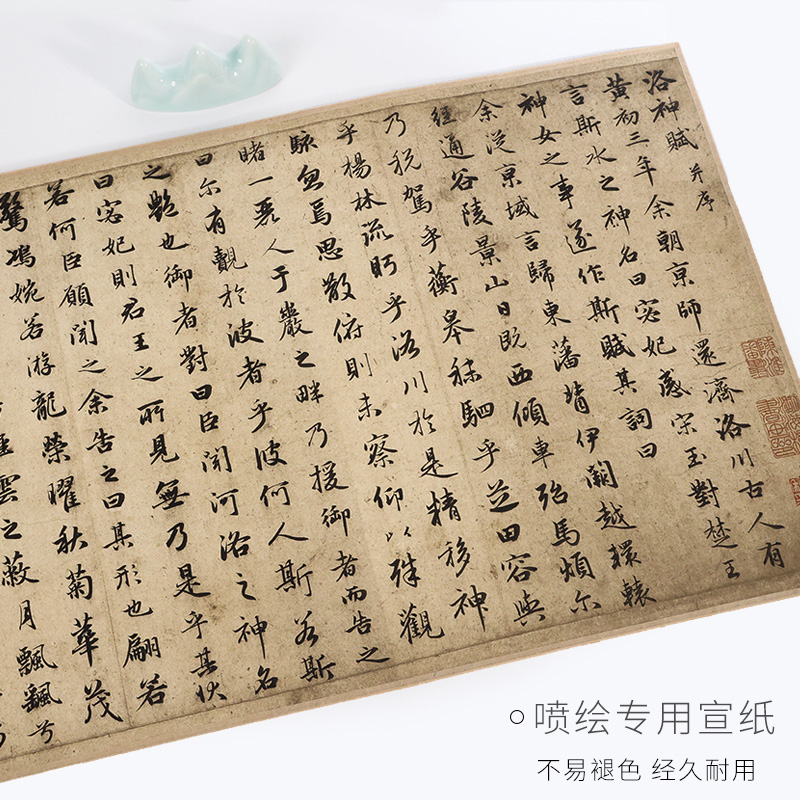 洛神賦 并序
黄初三年余朝京師還濟洛川古人有
言斯水之神名曰宓妃感宋玉對楚王
神女之事遂作斯賦其詞曰
余従京域言歸東藩背伊闕越轘轅
經通谷陵景山日既西傾車殆馬煩尔
乃税駕乎蘅皋秣駟乎芝田容與
乎楊林流眄乎洛川於是精移神
駭忽焉思散俯則未察仰以殊觀
睹一麗人于巖之畔乃援御者而告之
曰尔有覿於彼者乎彼何人斯若斯
之艷也御者對曰臣聞河洛之神名
曰宓妃則君王之所見無乃是乎其狀
若何臣願聞之余告之曰其形也翩若
驚鴻婉若游龍榮曜秋菊華茂
雲之蔽月飄飄兮
喷绘专用宣纸
不易褪色 经久耐用